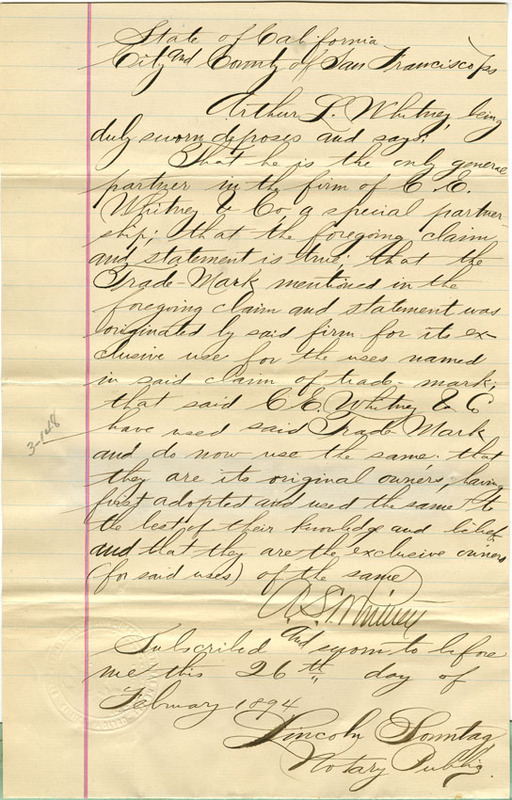 State of California
City and County of San Francisco } ss
Arthur L. Whitney, being
duly sworn deposes and says:
That he is the only general
partner in the firm of C. E.
Whitney & Co, a special partner-
ship; that the foregoing claim
and statement is true; that the
Trade-Mark mentioned in the
foregoing claim and statement was
originated by said firm for its ex-
clusive use for the uses named
in said claim of trade mark;
that said C. E. Whitney & C
have used said Trade-Mark
and do now use the same; that
they are its original owners; having
first adopted and used the same to
the best of their knowledge and belief
and that they are the exclusive owners
(for said uses) of the same
Whitney
Subscribed and sworn to before
me this 26th day of
Februry 1894
Lincoln Sonntag
Notary Public.